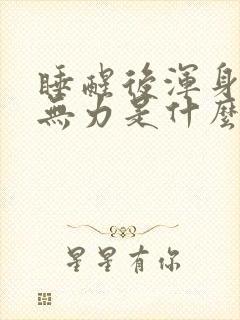 睡醒後渾身
無力是什麼
星星有你